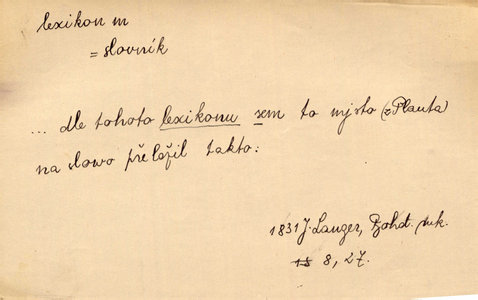 lexikon m
= slovník
... dle tohoto lexikonu sem to mjsto (z Planta)
na slowo přeložil takto:
1831 J. Langer, Bohd. ruk.
8, 27.